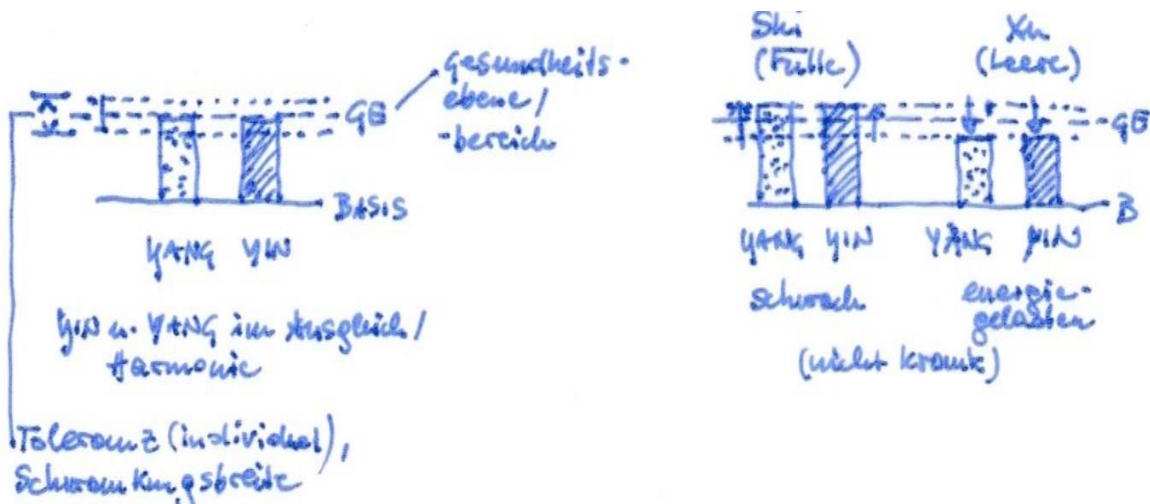 Gesundheits-
ebene /
-bereich
GE
BASIS
YANG YIN
YIN u. YANG im Ausgleich /
Harmonie
Toleranz (individual),
Schwankungsbreite
Shi
(Fülle)
Xu
(Leere)
GE
B
YANG YIN YANG YIN
schwach
energie-
geladen
(nicht krank)